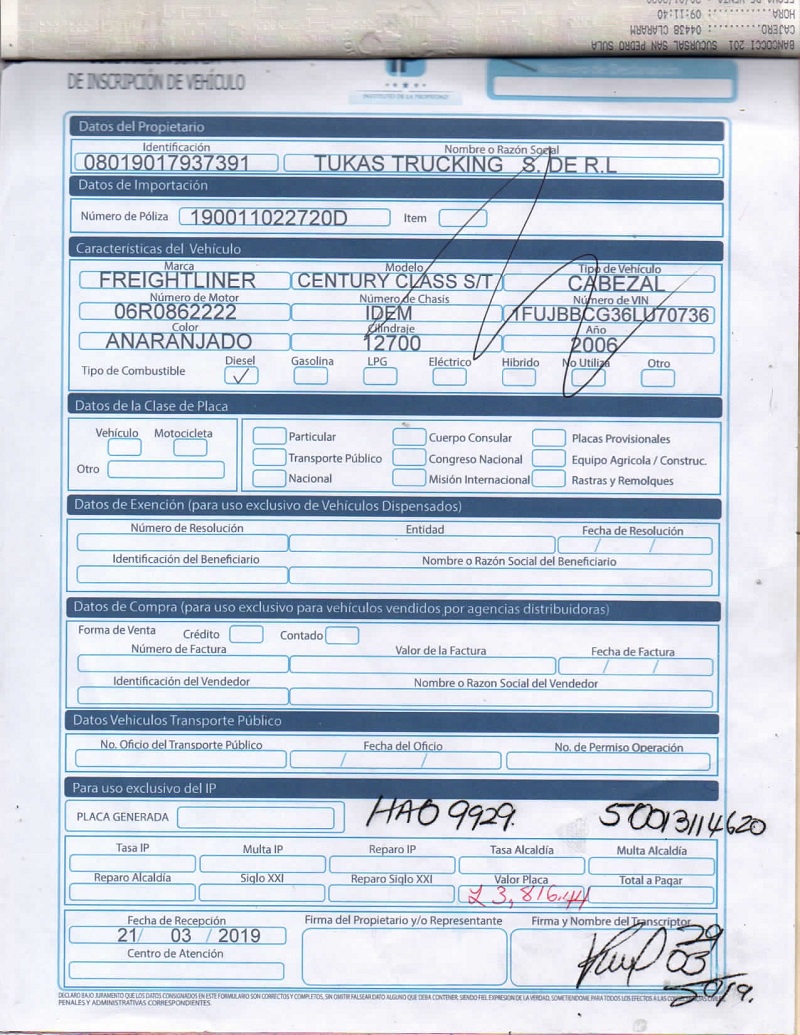 BANCOCCI 201 SUCURSAL SAN PEDRO SULA
CAJERO.........: 04438 CLARARM
HORA..........: 09:11:40
DE INSCRIPCIÓN DE VEHÍCULO
INSTITUTO DE LA PROPIEDAD
Datos del Propietario
Identificación Nombre o Razón Social
08019017937391 TUKAS TRUCKING S. DE R.L
Datos de Importación
Número de Póliza 190011022720D Item
Características del Vehículo
Marca Modelo Tipo de Vehículo
FREIGHTLINER CENTURY CLASS S/T CABEZAL
Número de Motor Número de Chasis Número de VIN
06R0862222 IDEM 1FUJBBCG36LU70736
Color Cilindraje Año
ANARANJADO 12700 2006
Tipo de Combustible Diesel ✓ Gasolina LPG Eléctrico Hibrido No Utiliza Otro
Datos de la Clase de Placa
Vehículo Motocicleta Particular Cuerpo Consular Placas Provisionales
Transporte Público Congreso Nacional Equipo Agricola / Construc.
Otro Nacional Misión Internacional Rastras y Remolques
Datos de Exención (para uso exclusivo de Vehículos Dispensados)
Número de Resolución Entidad Fecha de Resolución
/ /
Identificación del Beneficiario Nombre o Razón Social del Beneficiario
Datos de Compra (para uso exclusivo para vehículos vendidos por agencias distribuidoras)
Forma de Venta Crédito Contado
Número de Factura Valor de la Factura Fecha de Factura
/ /
Identificación del Vendedor Nombre o Razon Social del Vendedor
Datos Vehiculos Transporte Público
No. Oficio del Transporte Público Fecha del Oficio No. de Permiso Operación
/ /
Para uso exclusivo del IP
PLACA GENERADA HAO 9929. 50013114620
Tasa IP Multa IP Reparo IP Tasa Alcaldía Multa Alcaldía
Reparo Alcaldía Siglo XXI Reparo Siglo XXI Valor Placa Total a Pagar
L 3,816.44
Fecha de Recepción Firma del Propietario y/o Representante Firma y Nombre del Transcriptor
21/ 03 / 2019 29
Centro de Atención 03
DECLARO BAJO JURAMENTO QUE LOS DATOS CONSIGNADOS EN ESTE FORMULARIO SON CORRECTOS Y COMPLETOS, SIN OMITIR FALSEAR DATO ALGUNO QUE DEBA CONTENER, SIENDO FIEL EXPRESION DE LA VERDAD, SOMETIENDOME PARA TODOS LOS EFECTOS A LAS
PENALES Y ADMINISTRATIVAS CORRESPONDIENTES.